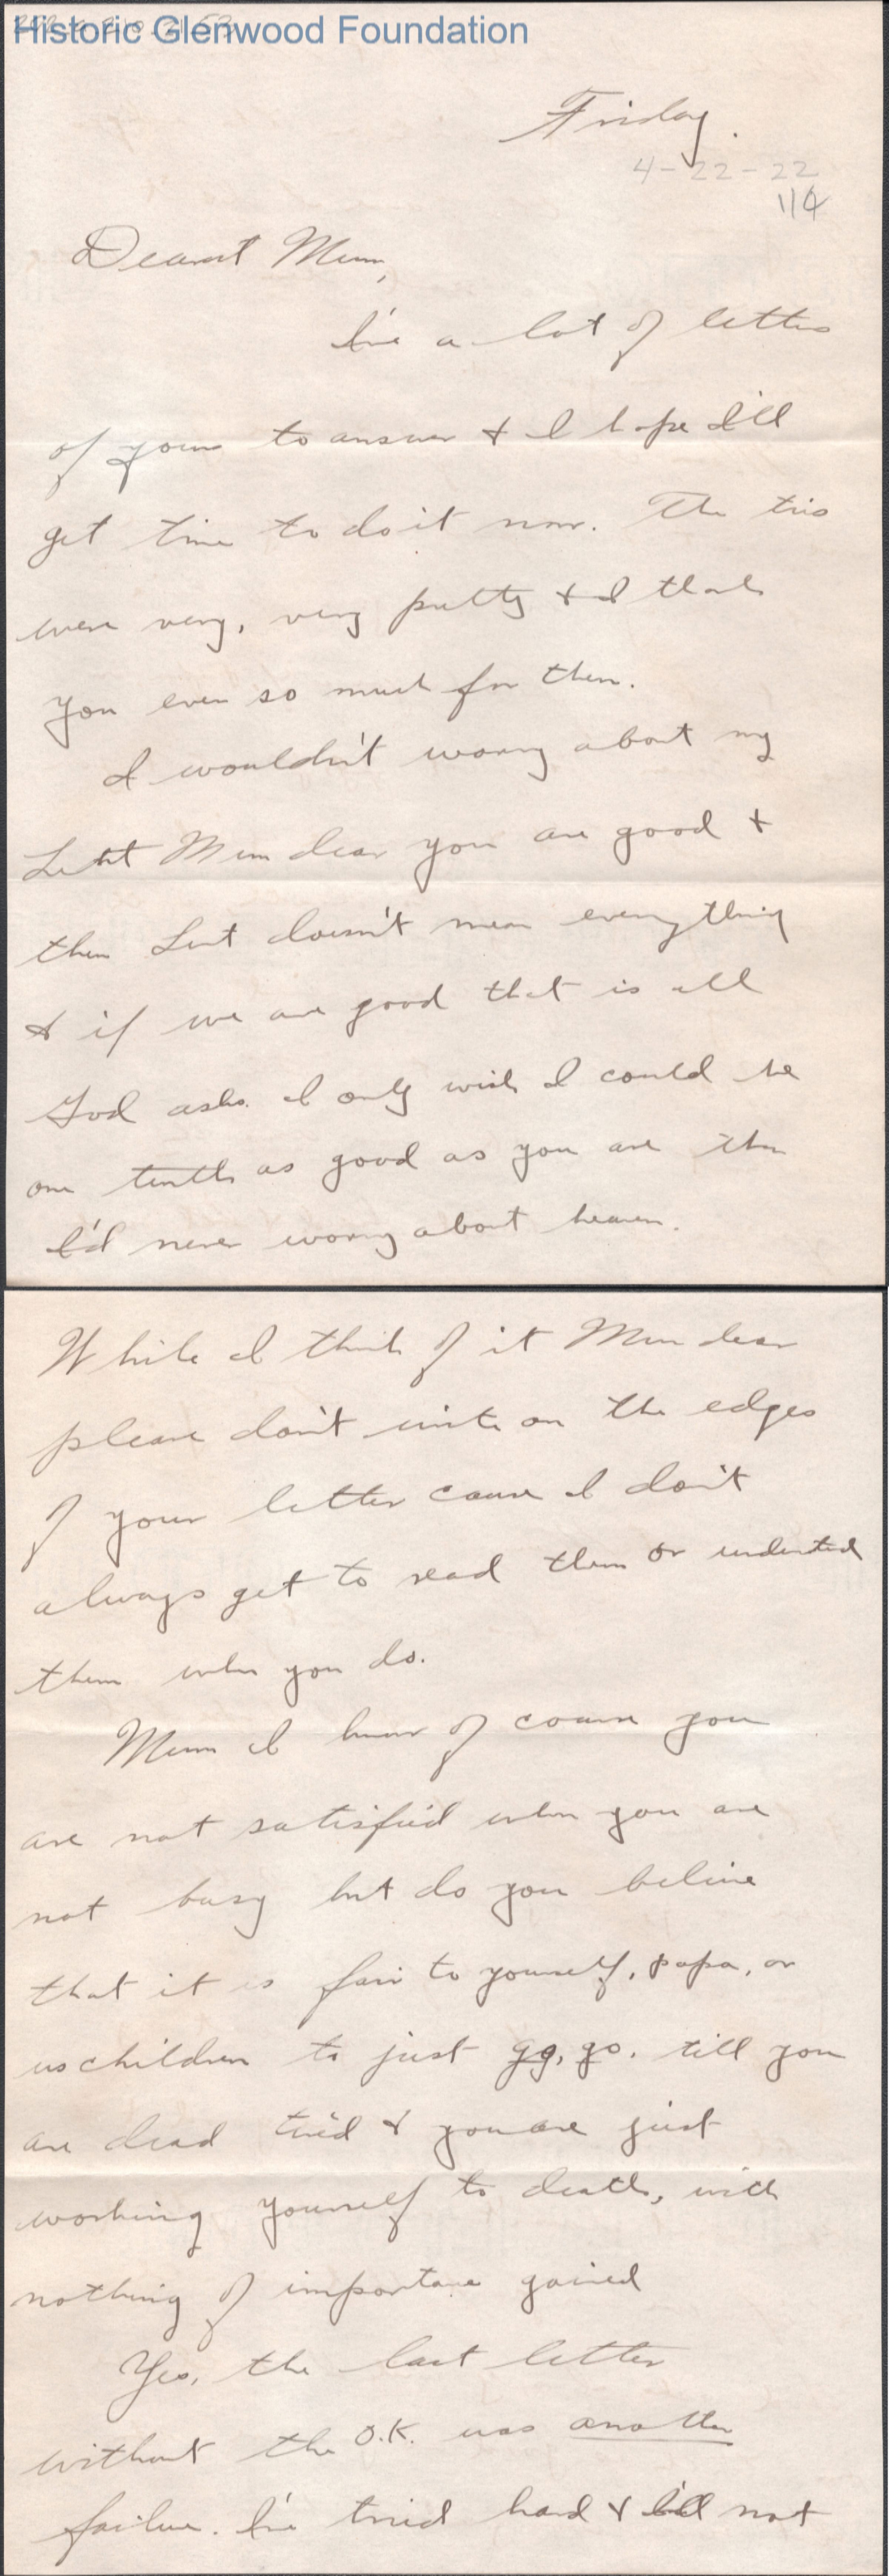 Historic Glenwood Foundation
Friday.
4-22-22
114
Dearest Mum,
I've a lot of letters
of yours to answer & I hope I'll
get time to do it now. The ties
were very, very pretty & I thank
you ever so much for them.
I wouldn't worry about my
Lent Mum dear you are good &
then Lent doesn't mean everything
& if we are good that is all
God asks. I only wish I could be
one tenth as good as you are then
I'd never worry about heaven.
While I think of it Mum dear
please don't write on the edges
of your letter cause I don't
always get to read them or understand
them when you do.
Mum I know of course you
are not satisfied when you are
not busy but do you believe
that it is fair to yourself, papa, or
us children to just go, go. till you
are dead tired & you are just
working yourself to death, with
nothing of importance gained
Yes, the last letter
without the O.K. was another
failure. I've tried hard & I'll not